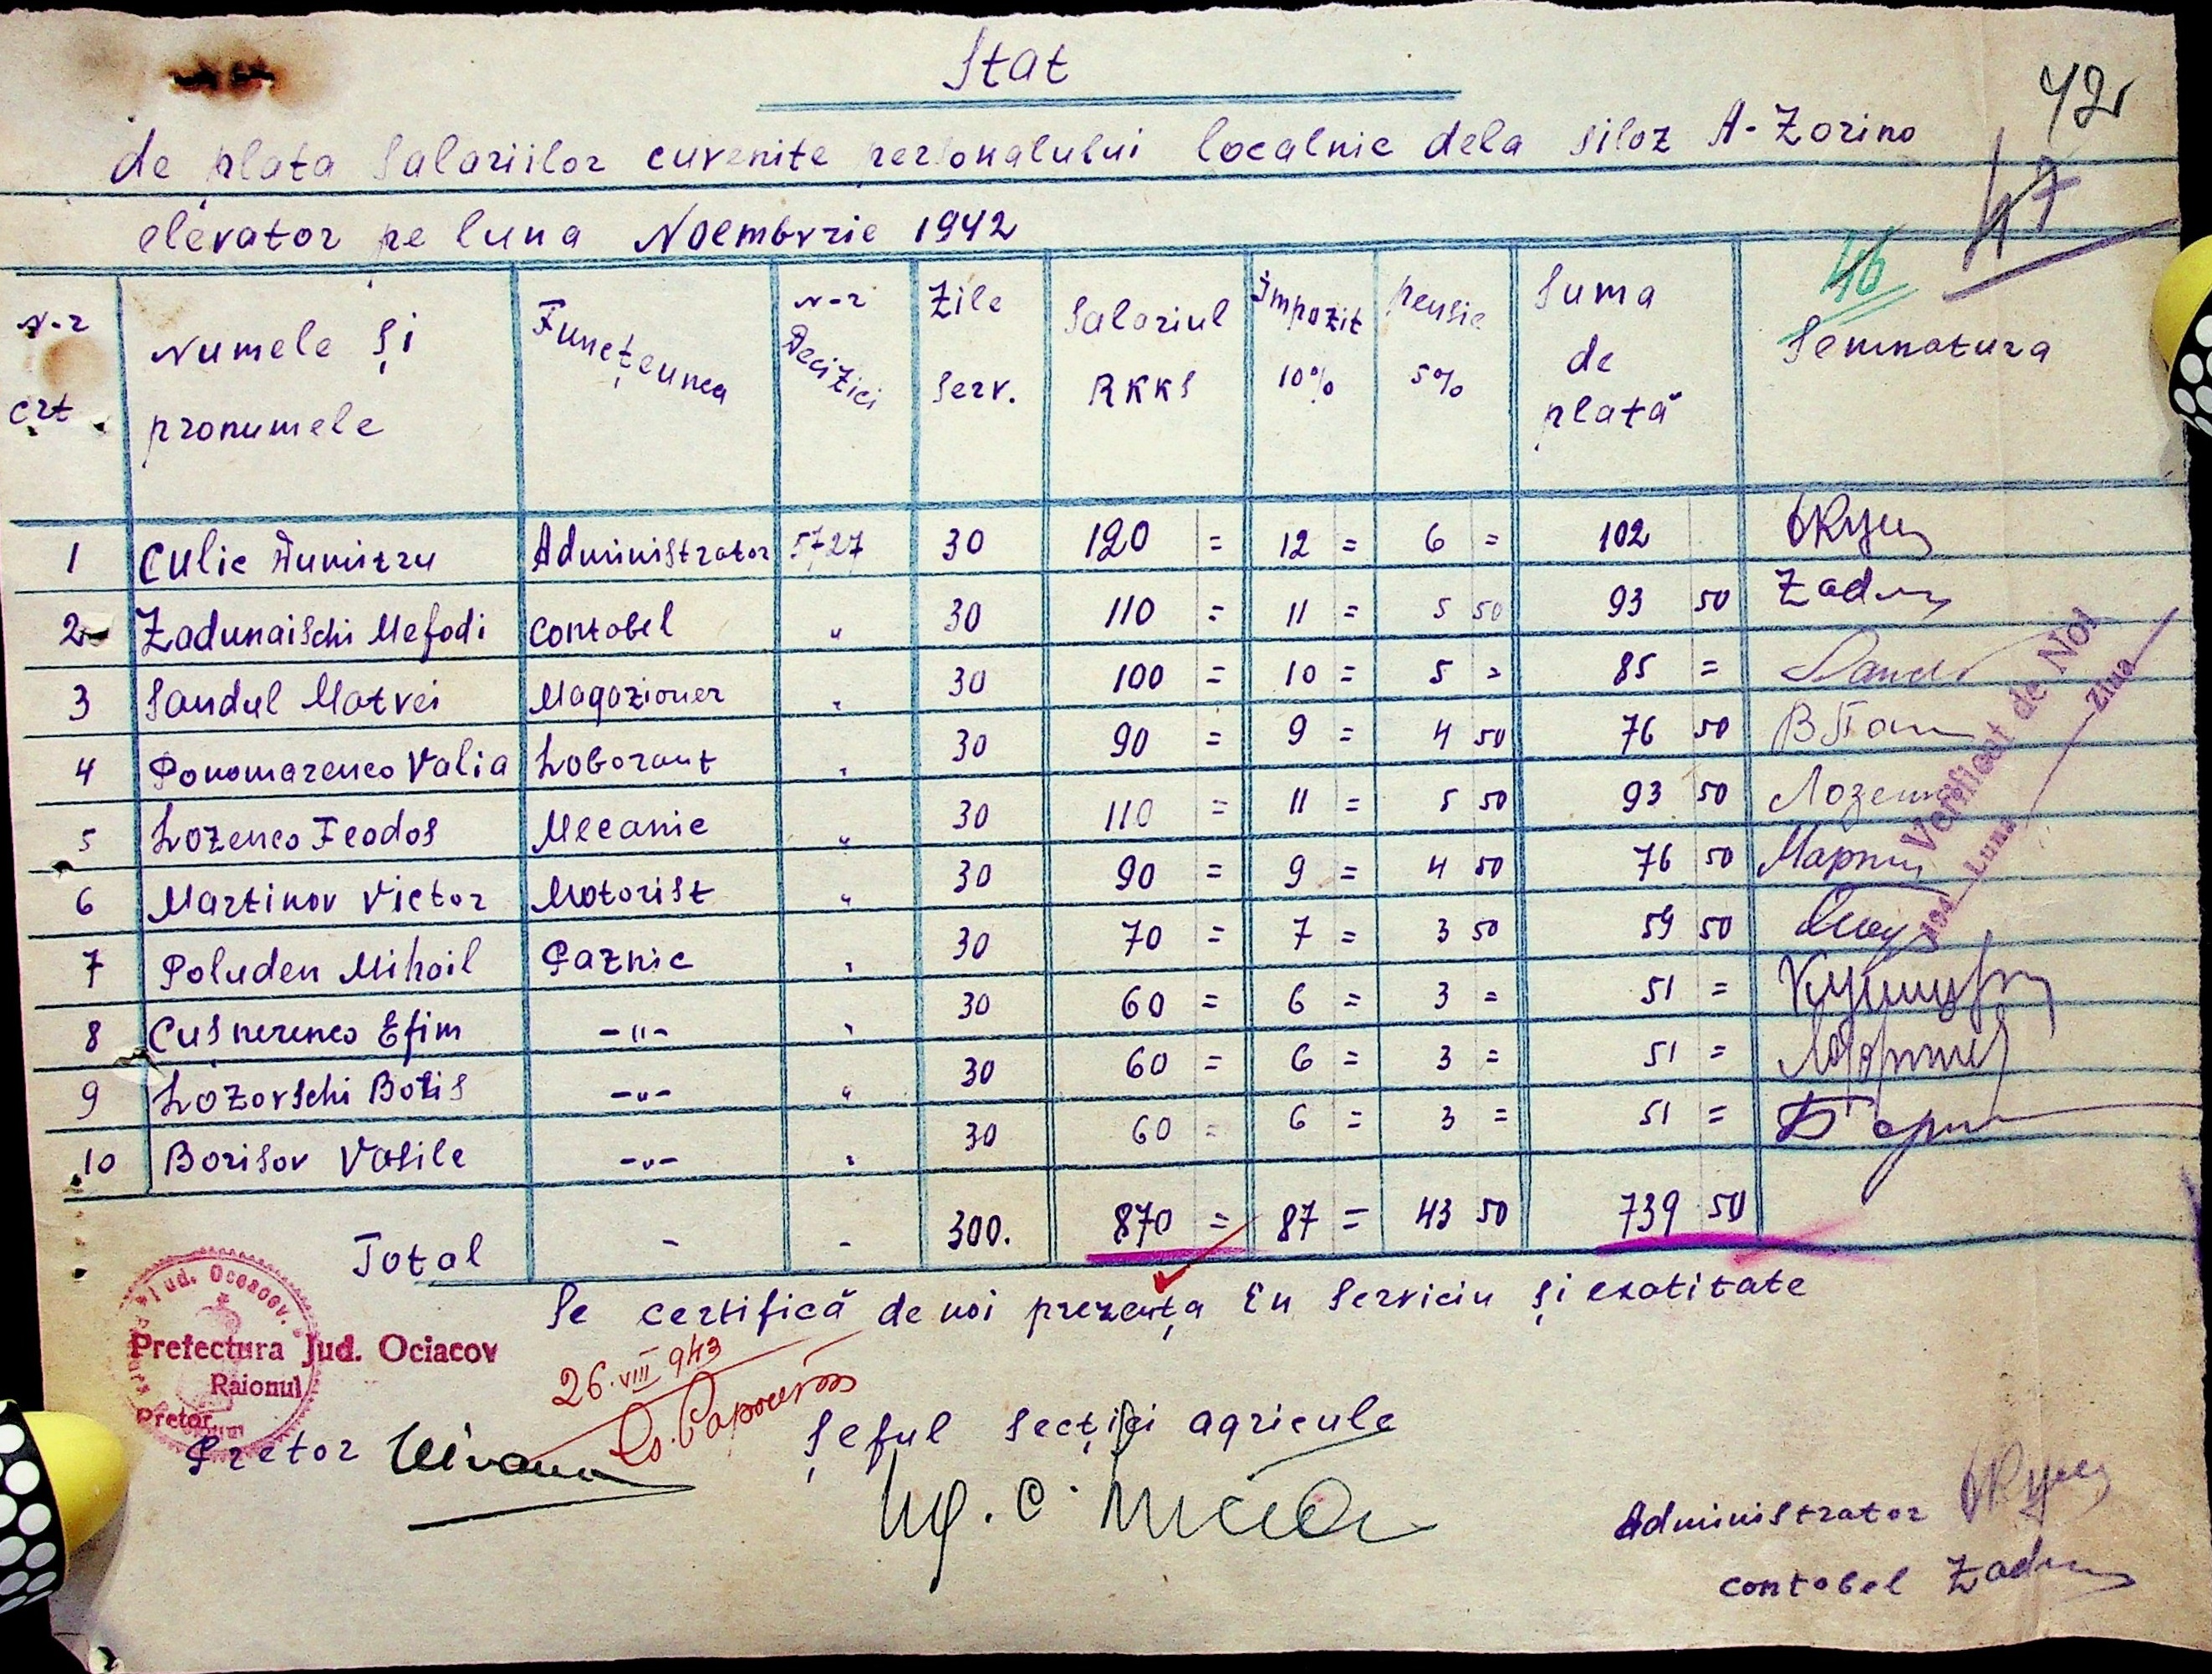 Stat
42
de plata Salariilor cuvenite personalului localnic dela siloz A-Zorino
47
elevator pe luna Noembvrie 1942
46
N-r crt | Numele și pronumele | Funcțeunea | N-r Decizici | Zile Serv. | Salariul RKKS | Impozit 10% | pensie 5% | Suma de plată | Semnatura
1 Culic Dumitru Administrator 5727 30 120 = 12 = 6 = 102
2 Zadunaischi Mefodi Contabel " 30 110 = 11 = 5 50 93 50 Zadun
3 Sandul Matvei Magazioner " 30 100 = 10 = 5 = 85 =
4 Ponomarenco Valia Loborant " 30 90 = 9 = 4 50 76 50
5 Lozenco Feodos Mecanic " 30 110 = 11 = 5 50 93 50
6 Martinov Victor Motorist " 30 90 = 9 = 4 50 76 50
7 Poluden Mihail Paznic " 30 70 = 7 = 3 50 59 50
8 Cusnerenco Efim -"- " 30 60 = 6 = 3 = 51 =
9 Lozovschi Boris -"- " 30 60 = 6 = 3 = 51 =
10 Borisov Vasile -"- " 30 60 = 6 = 3 = 51 =
Total - - 300. 870 = 87 = 43 50 739 50
Verificat de Noi
Luna Ziua
Se certifică de noi prezența En Serviciu și exatitate
Jud. Oceacov.
Prefectura Jud. Ociacov
Raionul
Pretor
26.VIII 943
Pretor
Șeful Secției agricule
Ing. C.
Administrator
contabel Zadun